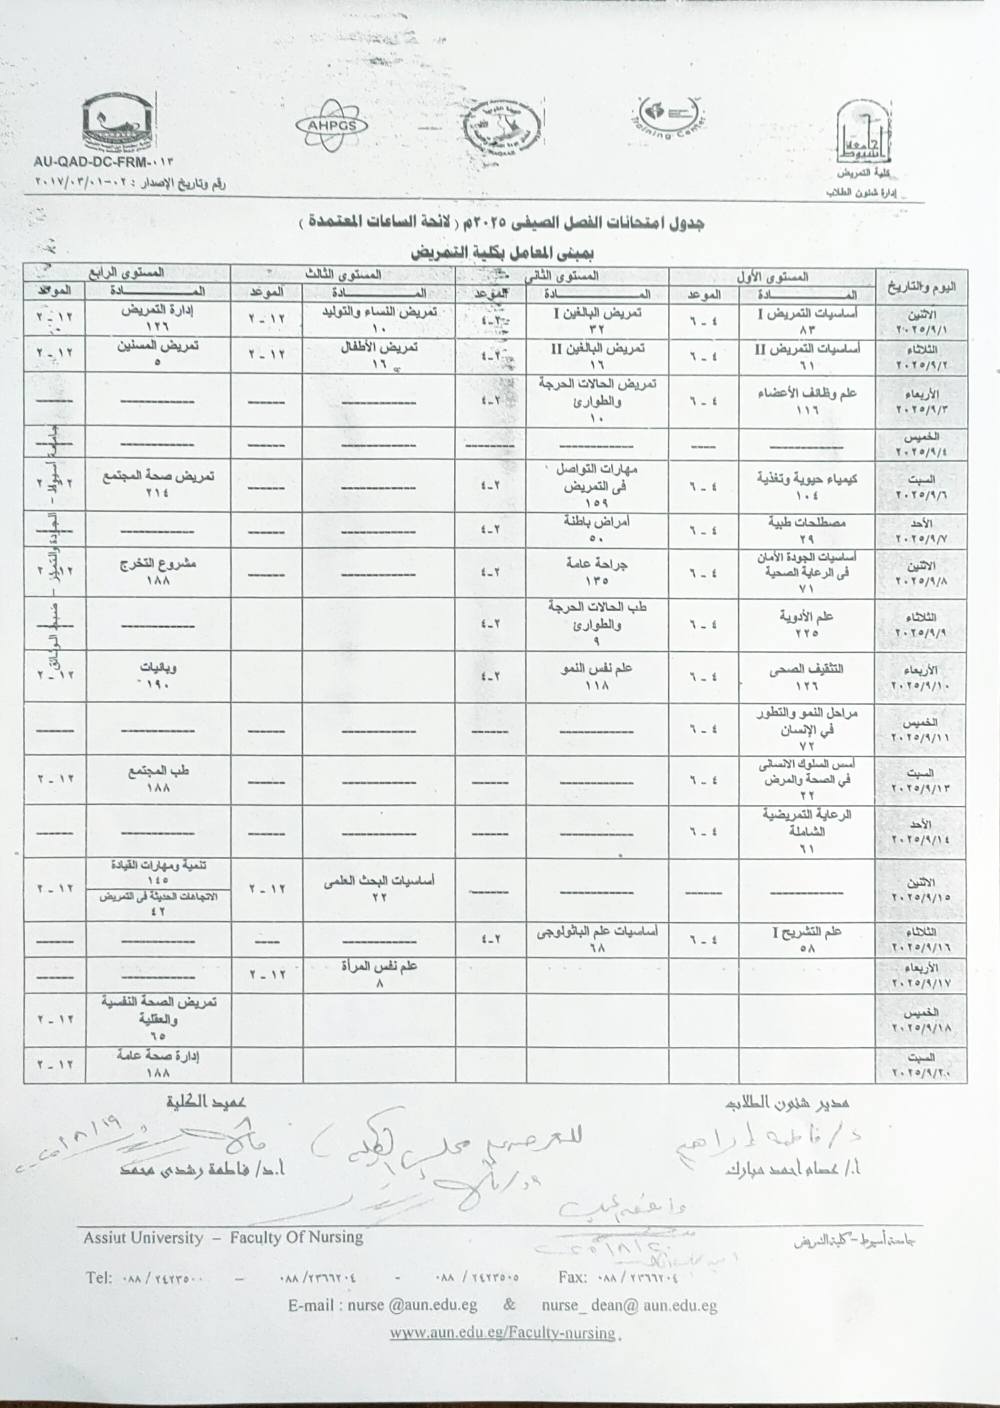 AHPGS
Training Center
جامعة أسيوط
كلية التمريض
إدارة شئون الطلاب
AU-QAD-DC-FRM-٠١٣
رقم وتاريخ الإصدار : ٠٢-٢٠١٧/٠٣/٠١
جدول امتحانات الفصل الصيفى ٢٠٢٥م ( لائحة الساعات المعتمدة )
بمبنى المعامل بكلية التمريض
اليوم والتاريخ المستوى الأول المستوى الثانى المستوى الثالث المستوى الرابع
المــــادة الموعد المــــادة الموعد المــــادة الموعد المــــادة الموعد
الاثنين ٢٠٢٥/٩/١ أساسيات التمريض I ٨٣ ٤ - ٦ تمريض البالغين I ٣٢ ٢-٤ تمريض النساء والتوليد ١٠ ١٢ - ٢ إدارة التمريض ١٢٦ ١٢ - ٢
الثلاثاء ٢٠٢٥/٩/٢ أساسيات التمريض II ٦١ ٤ - ٦ تمريض البالغين II ١٦ ٢-٤ تمريض الأطفال ١٦ ١٢ - ٢ تمريض المسنين ٥ ١٢ - ٢
الأربعاء ٢٠٢٥/٩/٣ علم وظائف الأعضاء ١١٦ ٤ - ٦ تمريض الحالات الحرجة والطوارئ ١٠ ٢-٤ ------ ------ ------ ------
الخميس ٢٠٢٥/٩/٤ ------ ------ ------ ------ ------ ------ ------ ------
السبت ٢٠٢٥/٩/٦ كيمياء حيوية وتغذية ١٠٤ ٤ - ٦ مهارات التواصل فى التمريض ١٥٩ ٢-٤ ------ ------ تمريض صحة المجتمع ٢١٤
الأحد ٢٠٢٥/٩/٧ مصطلحات طبية ٢٩ ٤ - ٦ أمراض باطنة ٥٠ ٢-٤ ------ ------ ------ ------
الاثنين ٢٠٢٥/٩/٨ أساسيات الجودة الأمان فى الرعاية الصحية ٧١ ٤ - ٦ جراحة عامة ١٣٥ ٢-٤ ------ ------ مشروع التخرج ١٨٨
الثلاثاء ٢٠٢٥/٩/٩ علم الأدوية ٢٢٥ ٤ - ٦ طب الحالات الحرجة والطوارئ ٩ ٢-٤ ------
الأربعاء ٢٠٢٥/٩/١٠ التثقيف الصحى ١٢٦ ٤ - ٦ علم نفس النمو ١١٨ ٢-٤ وبائيات ١٩٠ ١٢ - ٢
الخميس ٢٠٢٥/٩/١١ مراحل النمو والتطور في الإنسان ٧٢ ٤ - ٦ ------ ------ ------ ------ ------ ------
السبت ٢٠٢٥/٩/١٣ أسس السلوك الانسانى في الصحة والمرض ٢٢ ٤ - ٦ ------ ------ ------ ------ طب المجتمع ١٨٨ ١٢ - ٢
الأحد ٢٠٢٥/٩/١٤ الرعاية التمريضية الشاملة ٦١ ٤ - ٦ ------ ------ ------ ------ ------ ------
الاثنين ٢٠٢٥/٩/١٥ ------ ------ ------ ------ أساسيات البحث العلمى ٢٢ ١٢ - ٢ تنمية ومهارات القيادة ١٤٥ الاتجاهات الحديثة فى التمريض ٤٢ ١٢ - ٢
الثلاثاء ٢٠٢٥/٩/١٦ علم التشريح I ٥٨ ٤ - ٦ أساسيات علم الباثولوجى ٦٨ ٢-٤ ------ ---- ------ ------
الأربعاء ٢٠٢٥/٩/١٧ علم نفس المرأة ٨ ١٢ - ٢ ------ ------
الخميس ٢٠٢٥/٩/١٨ تمريض الصحة النفسية والعقلية ٦٥ ١٢ - ٢
السبت ٢٠٢٥/٩/٢٠ إدارة صحة عامة ١٨٨ ١٢ - ٢
جامعة أسيوط - الجودة والتميز - ضبط الوثائق
مدير شئون الطلاب
عميد الكلية
د/ فاطمة إبراهيم
للعرض على مجلس الكلية
أ./ عصام احمد مبارك
أ.د/ فاطمة رشدى محمد
Assiut University – Faculty Of Nursing
جامعة أسيوط – كلية التمريض
Tel: ٠٨٨ / ٢٤٢٣٥٠٠ - ٠٨٨ /٢٣٦٦٢٠٤ - ٠٨٨ / ٢٤٢٣٥٠٥ Fax: ٠٨٨ / ٢٣٦٦٢٠٤
E-mail : nurse @aun.edu.eg & nurse_ dean@ aun.edu.eg
www.aun.edu.eg/Faculty-nursing.